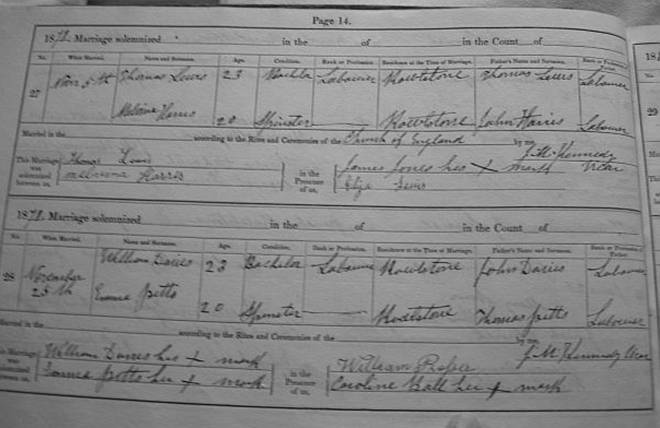 Page 14.
1878. Marriage solemnized in the of in the Count of
No. When Married. Name and Surname. Age. Condition. Rank or Profession. Residence at the Time of Marriage. Father's Name and Surname. Rank or Profession of Father.
27 Novr 5th Thomas Lewis 23 Bachelor Labourer Rowlstone Thomas Lewis Labourer
Melvina Harris 20 Spinster Rowlstone John Harris Labourer
Married in the according to the Rites and Ceremonies of the Church of England by me,
J. M. Kennedy
Vicar
This Marriage was solemnized between us, Thomas Lewis
Melvina Harris
in the Presence of us, James Jones his x mark
Eliza Lewis
1878. Marriage solemnized in the of in the Count of
No. When Married. Name and Surname. Age. Condition. Rank or Profession. Residence at the Time of Marriage. Father's Name and Surname. Rank or Profession of Father.
28 November 25th William Davies 23 Bachelor Labourer Rowlstone John Davies Labourer
Emma Pitts 20 Spinster Rowlstone Thomas Pitts Labourer
Married in the according to the Rites and Ceremonies of the by me,
J. M. Kennedy Vicar
Marriage was solemnized between us, William Davies his x mark
Emma Pitts her x mark
in the Presence of us, William Roper
Caroline Ball her x mark
29